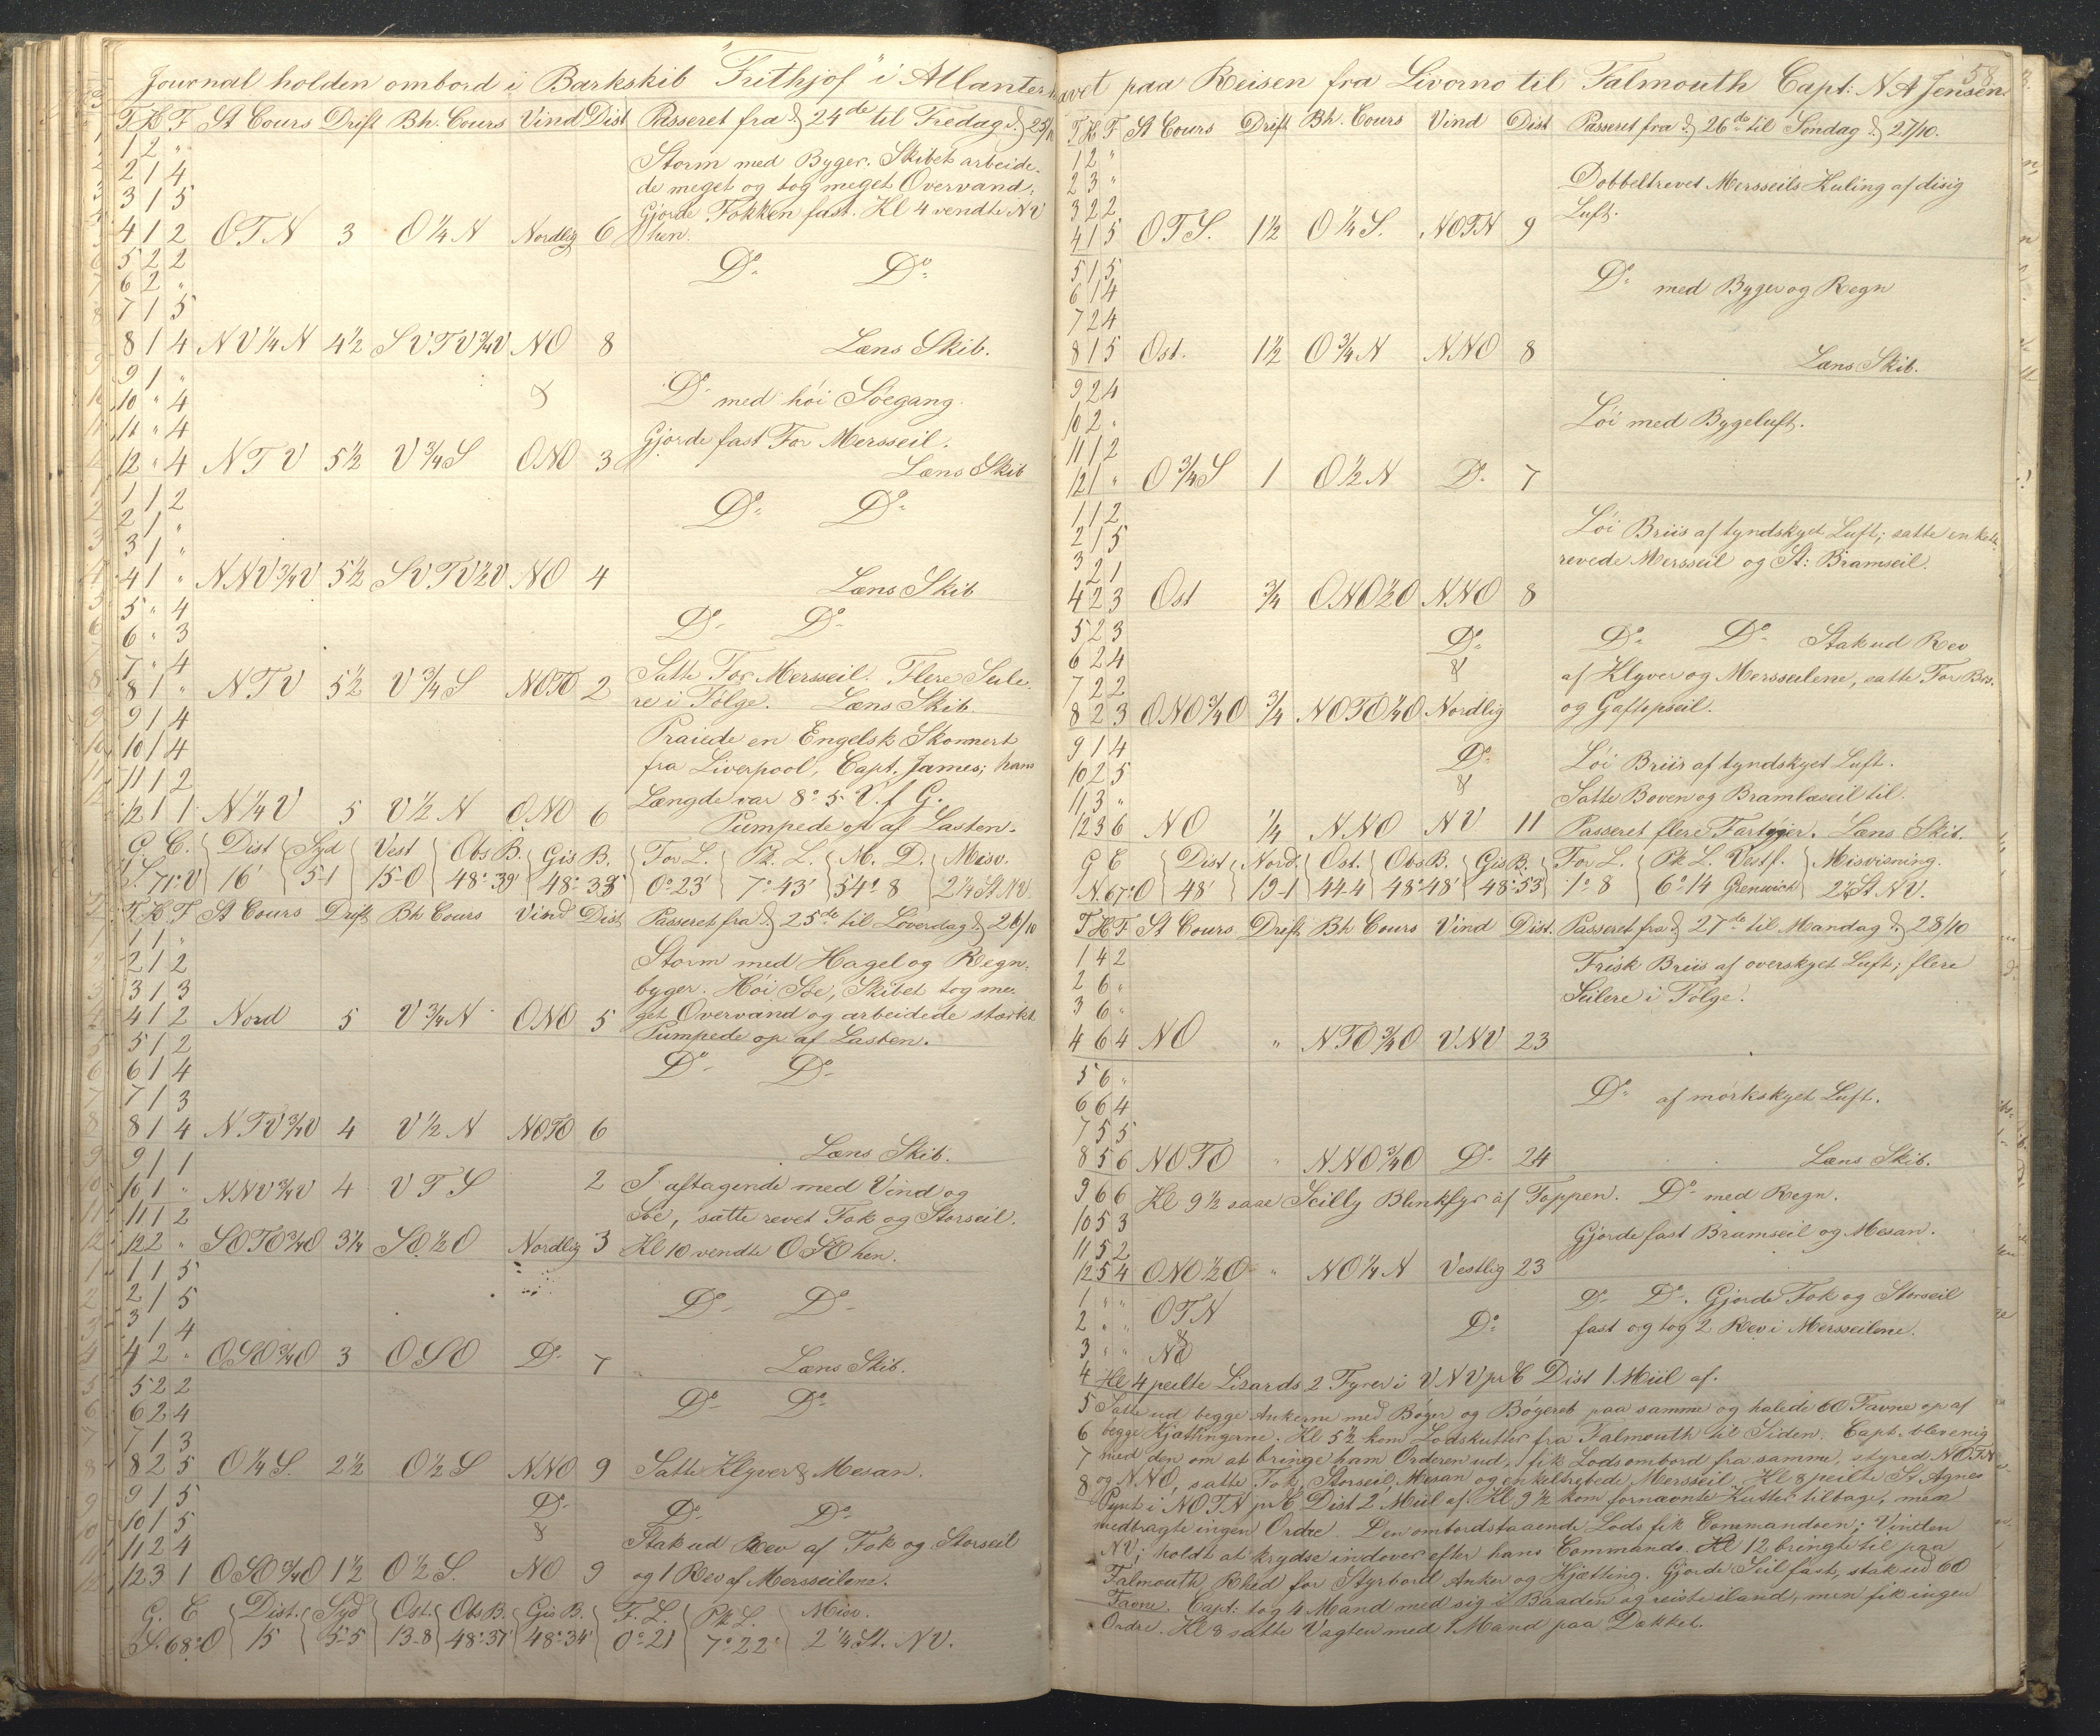 Journal holden ombord i Barkskib "Frithjof" i Atlanterhavet paa Reisen fra Livorno til Falmouth Capt: N A Jensen
58
T K F St Cours Drift Bh. Cours Vind Dist Passeret fra d. 24de til Fredag d. 25/10
1 2 "
2 1 4 Storm med Byger. Skibet arbeide-
3 1 5 de meget og tog meget Overvand;
Gjorde Fokken fast. Kl 4 vendte NV
4 1 2 OTN 3 O 1/4 N Nordlig 6 hen.
5 2 2 Do Do
6 2 "
7 1 5
8 1 4 NV 1/4 N 4 1/2 SVTV 3/4 V NO 8 Læns Skib.
9 1 "
10 " 4 & Do med høi Søegang.
11 " 4 Gjorde fast For Mersseil.
12 " 4 NTV 5 1/2 V 3/4 S ONO 3 Læns Skib
1 1 2 Do Do
2 1 "
3 1 "
4 1 " NNV 3/4 V 5 1/2 SVTV 1/2 V NO 4 Læns Skib
5 " 4 Do Do
6 " 3
7 " 4 Satte For Mersseil. Flere Seile-
8 1 " NTV 5 1/2 V 3/4 S NOTO 2 re i Følge. Læns Skib.
9 1 4 Praiede en Engelsk Skonnert
10 1 4 fra Liverpool, Capt. James; hans
11 1 2 Længde var 8° 5' V. f G.
12 1 1 N 1/4 V 5 V 1/2 N ONO 6 Pumpede op af Lasten.
G. C. Dist Syd Vest Obs B. Gis B. For L. Pk. L. M. D. Misv.
S. 71° V 16' 5-1 15-0 48° 39' 48° 38' 0° 23' 7° 43' 54° 8 2 1/4 St. NV.
T K F St Cours Drift Bh Cours Vind Dist Passeret fra d. 25de til Löverdag d. 26/10
1 1 " Storm med Hagel og Regn-
2 1 2 byger. Høi Søe, Skibet tog me-
3 1 3 get Overvand og arbeidede stærkt
4 1 2 Nord 5 V 3/4 N ONO 5 Pumpede op af Lasten.
5 1 2 Do Do
6 1 4
7 1 3
8 1 4 NTV 3/4 V 4 V 1/2 N NOTO 6 Læns Skib.
9 1 1
10 1 " NNV 3/4 V 4 VTS 2 I aftagende med Vind og
11 1 2 Søe, satte revet Fok og Storseil.
12 2 " SOTO 3/4 O 3 1/4 SO 1/2 O Nordlig 3 Kl 10 vendte OSO hen.
1 1 5
2 1 5 Do Do
3 1 4
4 2 " OSO 3/4 O 3 OSO Do 7 Læns Skib.
5 2 2 Do Do
6 2 4
7 1 3
8 2 5 O 1/4 S. 2 1/2 O 1/2 S NNO 9 Satte Klyver & Mesan.
9 1 5 Do Do Do
10 1 5 &
11 2 4 Stak ud Rev af Fok og Storseil
12 3 1 OSO 3/4 O 1 1/2 O 1/2 S. NO 9 og 1 Rev af Mersseilene.
G. C Dist. Syd Ost. Obs B. Gis B. F. L. Pk L. Misv.
S. 68° O 15 5-5 13-8 48° 37' 48° 34' 0° 21 7° 22' 2 1/4 St. NV.
T. K. F St Cours Drift Bh. Cours Vind Dist Passeret fra d. 26de til Søndag d. 27/10.
1 2 "
2 3 " Dobbeltrevet Mersseils Kuling af disig
3 2 2 Luft.
4 1 5 OTS. 1 1/2 O 1/4 S. NOTN 9
5 1 5 Do med Byger og Regn
6 1 4
7 2 4
8 1 5 Ost. 1 1/2 O 3/4 N NNO 8 Læns Skib.
9 2 4
10 2 " Løi med Bygeluft.
11 1 2
12 1 " O 3/4 S 1 O 1/2 N Do 7
1 1 2 Løi Briis af tyndskyet Luft; satte enkelt-
2 1 5 revede Mersseil og St: Bramseil.
3 2 1
4 2 3 Ost 3/4 ONO 1/2 O NNO 8
5 2 3 Do Do Do Stak ud Rev
6 2 4 & af Klyver og Mersseilene, satte For Br.
7 2 2 og Gaftopseil.
8 2 3 ONO 3/4 O 3/4 NOTO 1/4 O Nordlig
9 1 4 Do Løi Briis af tyndskyet Luft.
10 2 5 &
11 3 " Satte Boven og Bramlæseil til.
12 3 6 NO 1/4 NNO NV 11 Passeret flere Fartøjer. Læns Skib.
G C Dist Nord. Ost. Obs B. Gis B. For L. Pk L. Vest f. Misvisning.
N. 67° O 48' 19-1 44-4 48° 48' 48° 53' 1° 8 6° 14 Grenwich 2 1/4 St NV.
T K F St Cours Drift Bh Cours Vind Dist. Passeret fra d. 27de til Mandag d. 28/10
1 4 2 Frisk Briis af overskyet Luft; flere
2 6 " Seilere i Følge.
3 6 "
4 6 4 NO " NTO 3/4 O VNV 23
5 6 "
6 6 4 Do af mørkskyet Luft.
7 5 5
8 5 6 NOTO " NNO 3/4 O Do 24 Læns Skib.
9 6 6 Kl 9 1/2 saae Scilly Blinkfyr af Toppen. Do med Regn.
10 5 3 Gjorde fast Bramseil og Mesan.
11 5 2
12 5 4 ONO 1/2 O " NO 1/4 N Vestlig 23
1 " " OTN Do Do. Gjorde Fok og Storseil
2 " " & Do fast og tog 2 Rev i Mersseilene.
3 " " NO
4 Kl 4 peilte Lizards 2 Fyrer i VNV pr C Dist 1 Miil af.
5 Satte ud begge Ankerne med Bøyer og Bøyereb paa samme og halede 60 Favne op af
6 begge Kjættingerne. Kl 5 1/2 kom Lodskutter fra Falmouth til Siden. Capt. blev enig
7 med den om at bringe ham Orderen ud, fik Lods ombord fra samme, styred NOTN
8 og NNO, satte Fok, Storseil, Mesan og enkeltrebede Mersseil. Kl 8 peilte St Agnes
Pynt i NOTN pr C. Dist 2 Miil af. Kl 9 1/2 kom fornævnte Kutter tilbage, men
medbragte ingen Ordre. Den ombordstaaende Lods fik Commandoen; Vinden
NV; holdt at krydse indover efter hans Commando. Kl 12 bringte til paa
Falmouth Rhed for Styrbord Anker og Kjætting. Gjorde Seil fast, stak ud 60
Favne. Capt: tog 4 Mand med sig i Baaden og reiste iland, men fik ingen
Ordre. Kl 8 satte Vagten med 1 Mand paa Dækket.